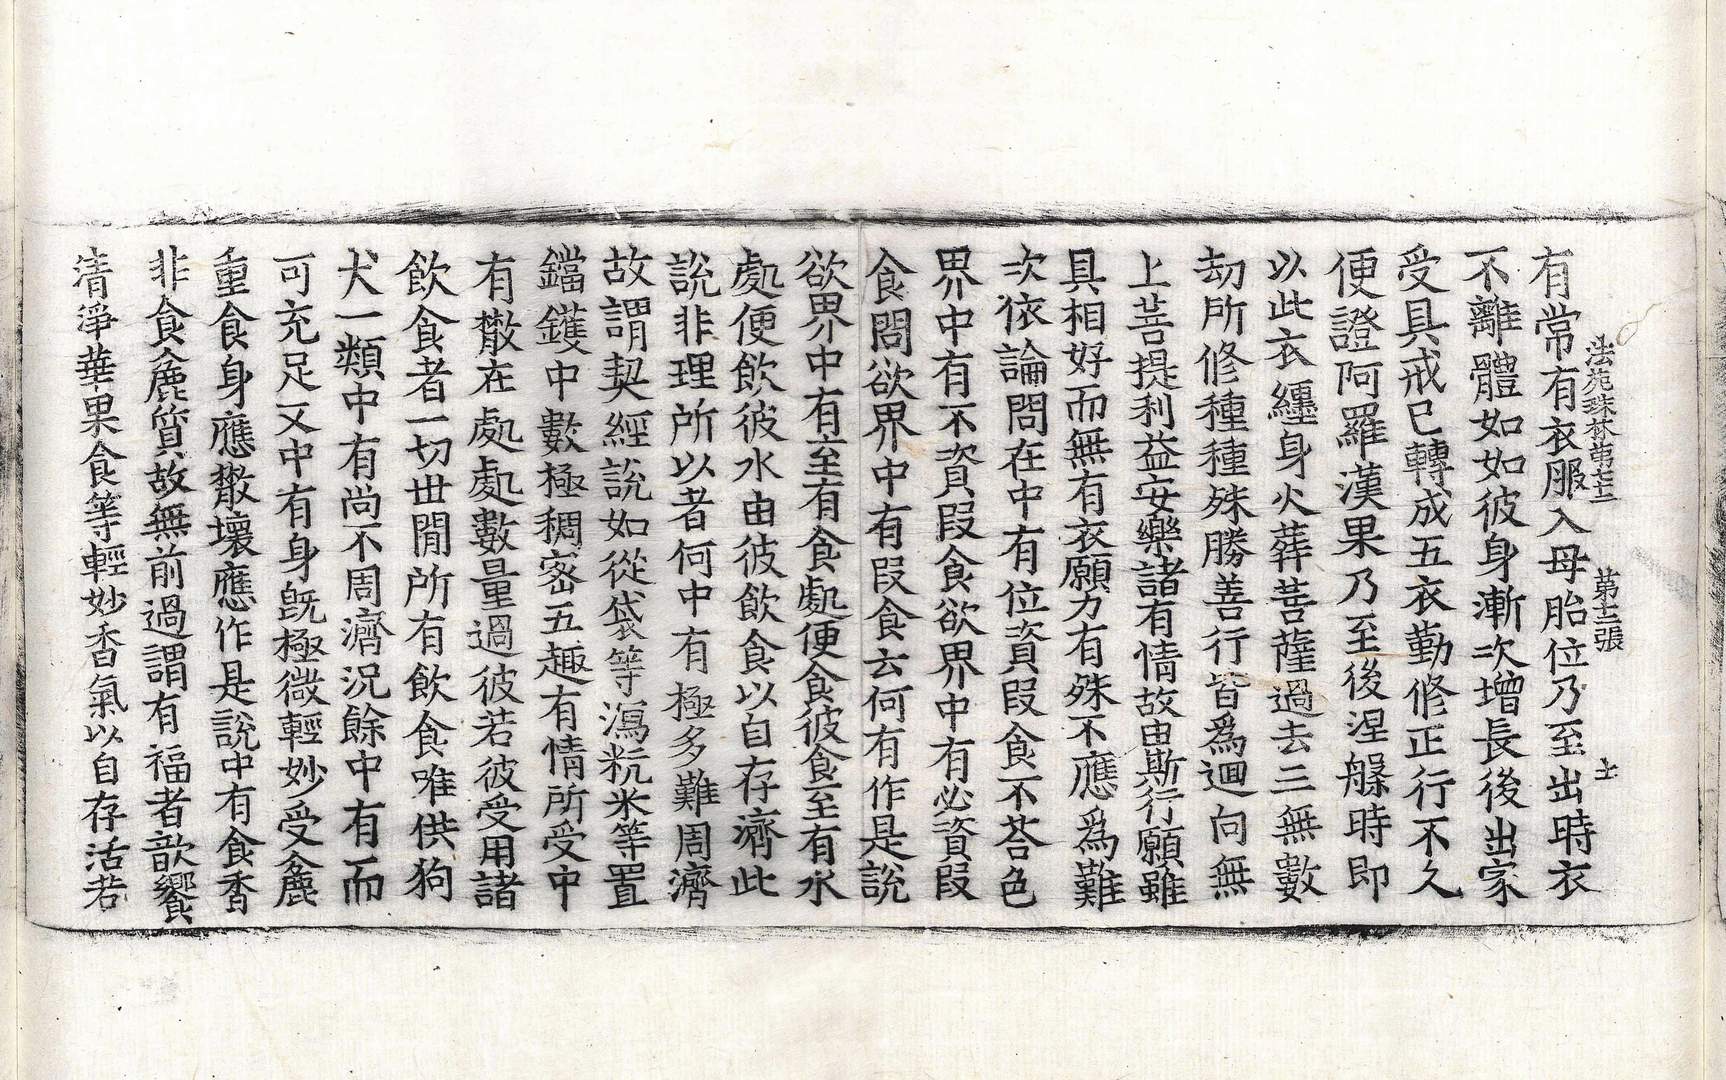 法苑珠林第七十二 第十三張 士
有常有衣服入母胎位乃至出時衣
不離體如如彼身漸次增長後出家
受具戒已轉成五衣勤修正行不久
便證阿羅漢果乃至後涅槃時即
以此衣纏身火葬菩薩過去三無數
劫所修種種殊勝善行皆爲迴向無
上菩提利益安樂諸有情故由斯行願雖
具相好而無有衣願力有殊不應爲難
次依論問在中有位資段食不荅色
界中有不資段食欲界中有必資段
食問欲界中有段食云何有作是說
欲界中有至有食處便食彼食至有水
處便飲彼水由彼飲食以自存濟此
說非理所以者何中有極多難周濟
故謂契經說如從袋等瀉粇米等置
鐺鑊中數極稠密五趣有情所受中
有散在處處數量過彼若彼受用諸
飲食者一切世間所有飲食唯供狗
犬一類中有尚不周濟況餘中有而
可充足又中有身旣極微輕妙受麁
重食身應散壞應作是說中有食香
非食麁質故無前過謂有福者歆饗
清淨華果食等輕妙香氣以自存活若